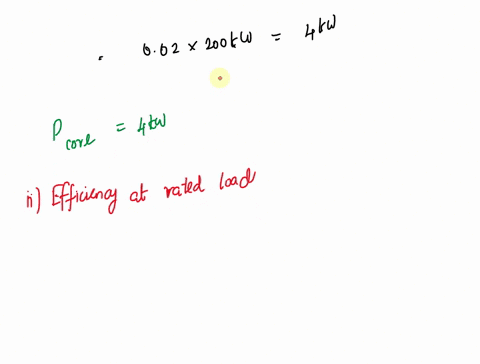 0.02 × 200kW = 4kW
Pcore = 4kW
ii) Efficiency at rated load